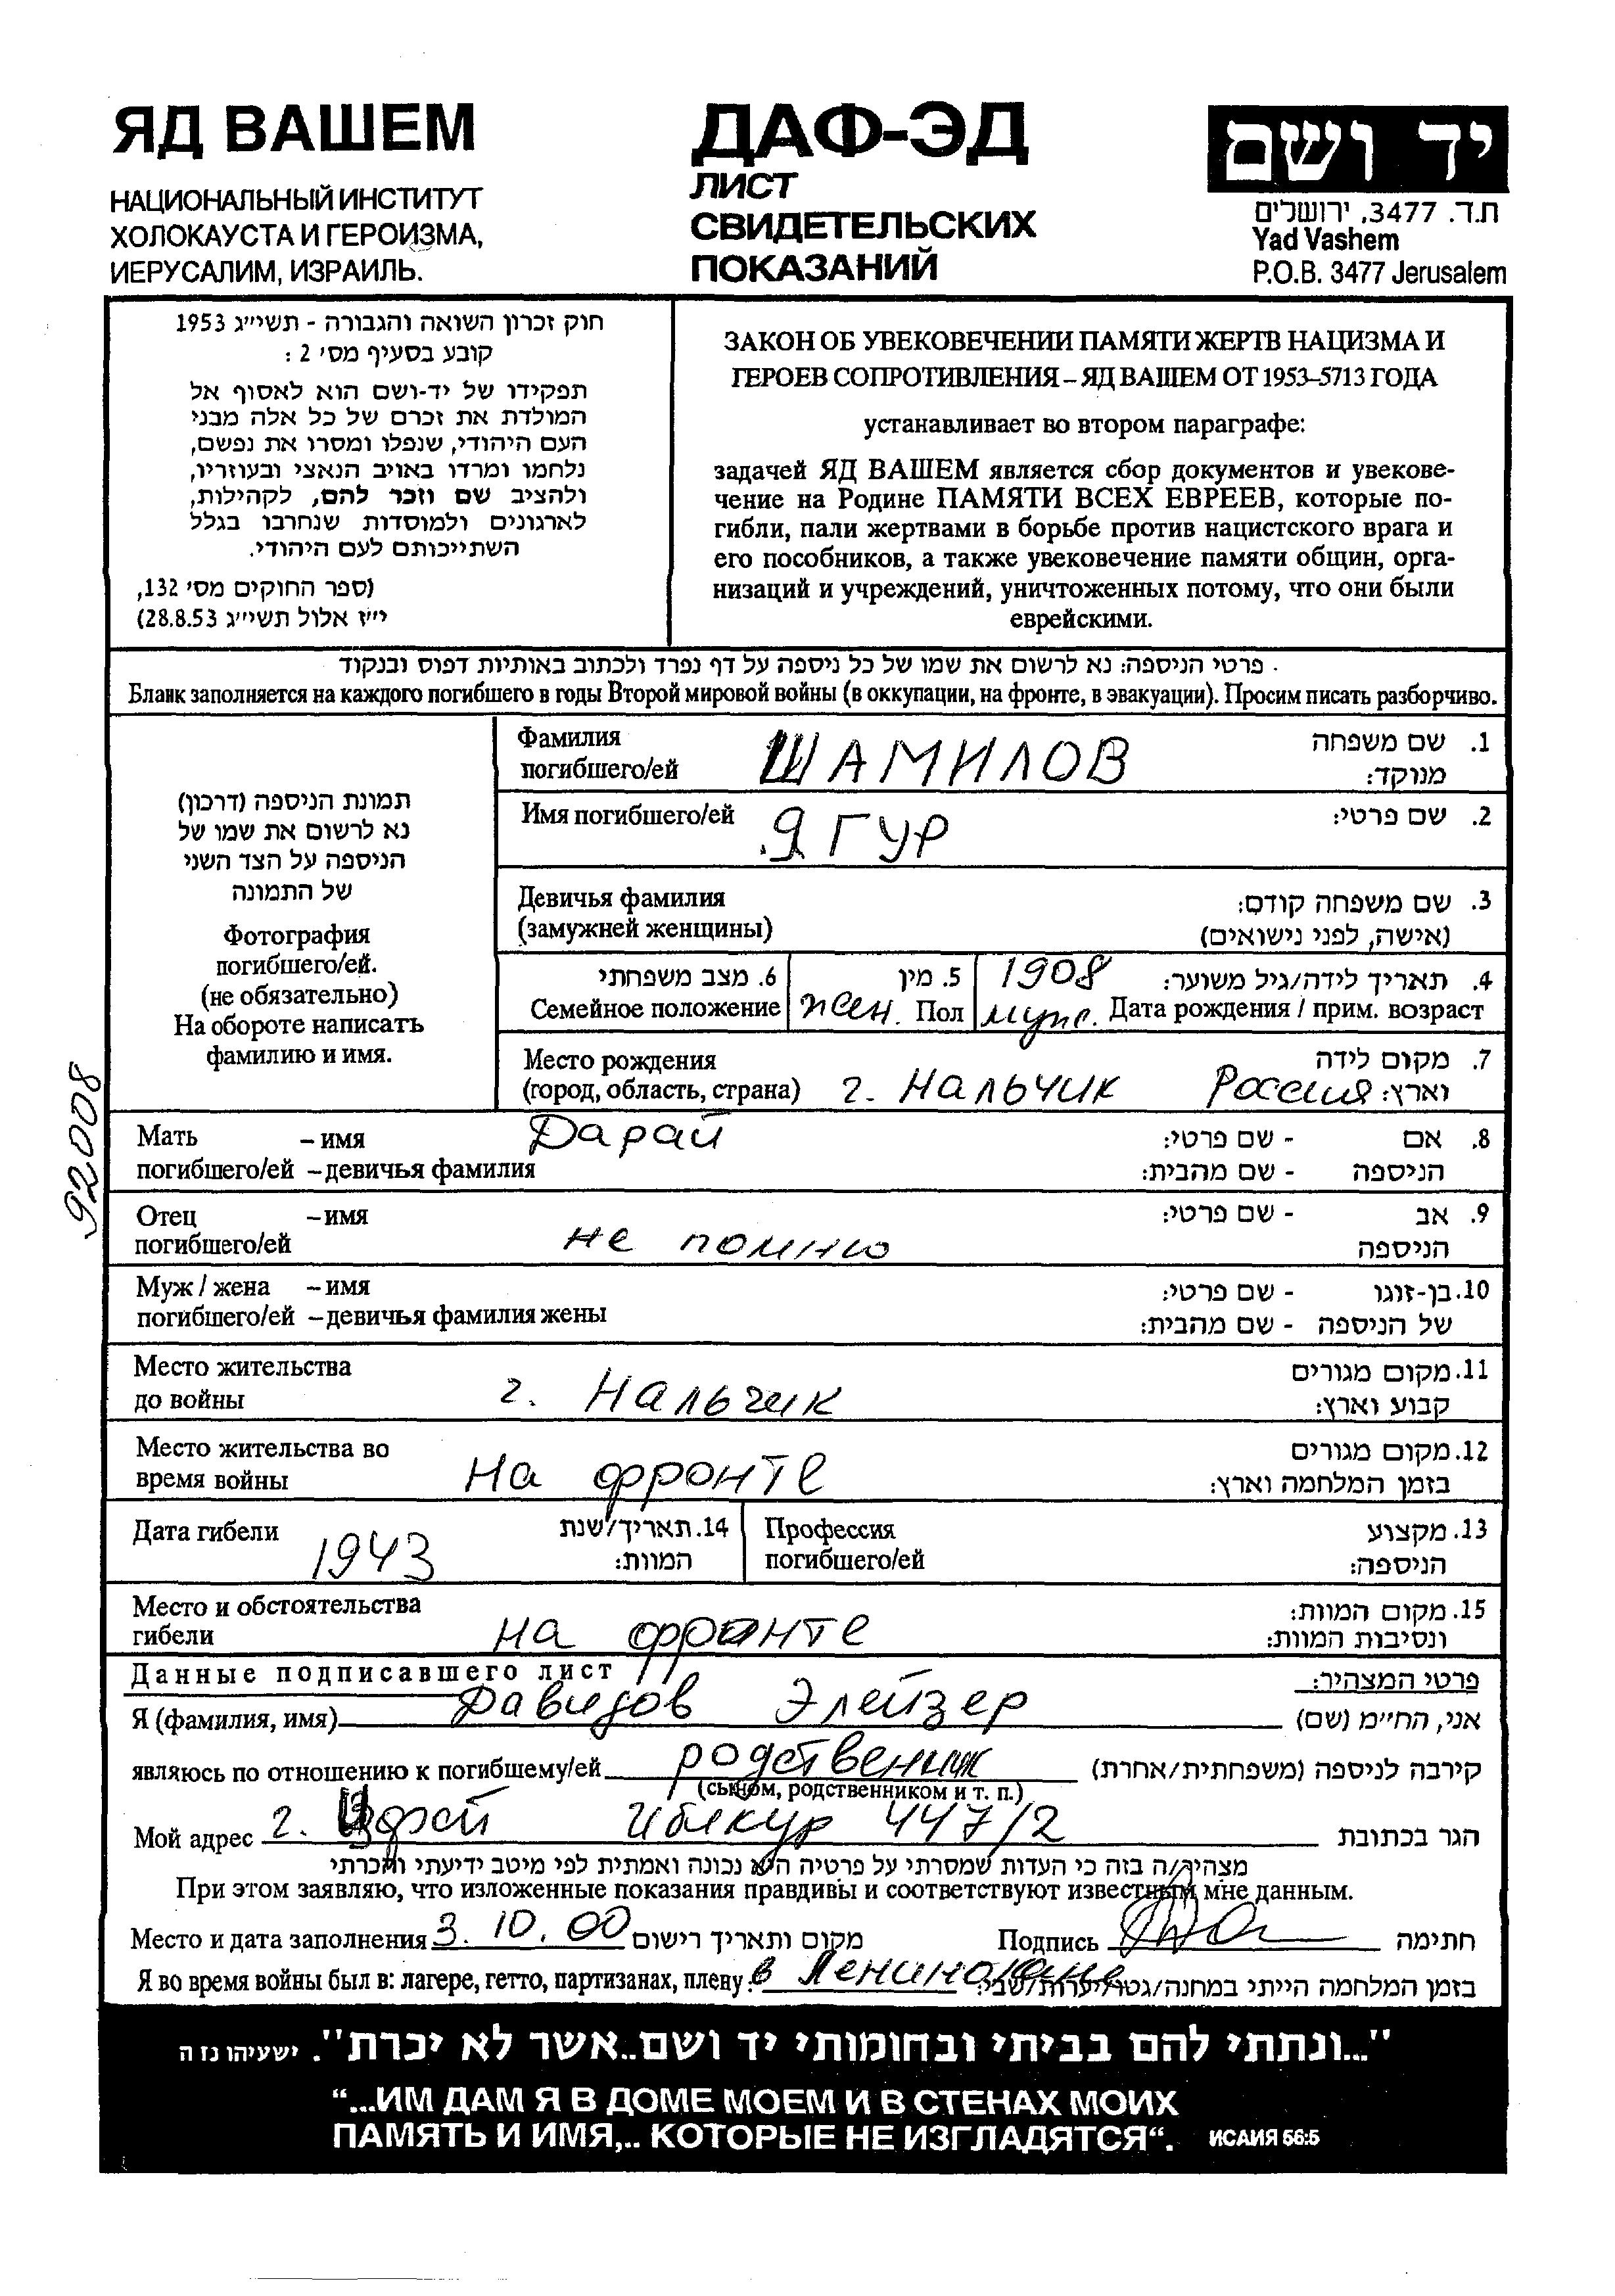 ЯД ВАШЕМ
НАЦИОНАЛЬНЫЙ ИНСТИТУТ
ХОЛОКАУСТА И ГЕРОИЗМА,
ИЕРУСАЛИМ, ИЗРАИЛЬ.
ДАФ-ЭД
ЛИСТ
СВИДЕТЕЛЬСКИХ
ПОКАЗАНИЙ
יד ושם
ת.ד. 3477, ירושלים
Yad Vashem
P.O.B. 3477 Jerusalem
חוק זכרון השואה והגבורה - תשי״ג 1953
קובע בסעיף מס׳ 2 :
תפקידו של יד-ושם הוא לאסוף אל
המולדת את זכרם של כל אלה מבני
העם היהודי, שנפלו ומסרו את נפשם,
נלחמו ומרדו באויב הנאצי ובעוזריו,
ולהציב שם וזכר להם, לקהילות,
לארגונים ולמוסדות שנחרבו בגלל
השתייכותם לעם היהודי.
(ספר החוקים מס׳ 132,
י״ז אלול תשי״ג 28.8.53)
ЗАКОН ОБ УВЕКОВЕЧЕНИИ ПАМЯТИ ЖЕРТВ НАЦИЗМА И
ГЕРОЕВ СОПРОТИВЛЕНИЯ – ЯД ВАШЕМ ОТ 1953–5713 ГОДА
устанавливает во втором параграфе:
задачей ЯД ВАШЕМ является сбор документов и увекове-
чение на Родине ПАМЯТИ ВСЕХ ЕВРЕЕВ, которые по-
гибли, пали жертвами в борьбе против нацистского врага и
его пособников, а также увековечение памяти общин, орга-
низаций и учреждений, уничтоженных потому, что они были
еврейскими.
פרטי הניספה: נא לרשום את שמו של כל ניספה על דף נפרד ולכתוב באותיות דפוס ובנקוד
Бланк заполняется на каждого погибшего в годы Второй мировой войны (в оккупации, на фронте, в эвакуации). Просим писать разборчиво.
תמונת הניספה (דרכון)
נא לרשום את שמו של
הניספה על הצד השני
של התמונה
Фотография
погибшего/ей.
(не обязательно)
На обороте написать
фамилию и имя.
92008
Фамилия погибшего/ей ШАМИЛОВ 1. שם משפחה מנוקד:
Имя погибшего/ей ЯГУР 2. שם פרטי:
Девичья фамилия 3. שם משפחה קודם:
(замужней женщины) (אישה, לפני נישואים)
6. מצב משפחתי 5. מין 1908 4. תאריך לידה/גיל משוער:
Семейное положение жен. Пол муж. Дата рождения / прим. возраст
Место рождения 7. מקום לידה
(город, область, страна) г. Нальчик Россия וארץ:
Мать – имя Дарай 8. אם - שם פרטי:
погибшего/ей – девичья фамилия הניספה - שם מהבית:
Отец – имя 9. אב - שם פרטי:
погибшего/ей не помню הניספה
Муж / жена – имя 10. בן-זוגו - שם פרטי:
погибшего/ей – девичья фамилия жены של הניספה - שם מהבית:
Место жительства 11. מקום מגורים
до войны г. Нальчик קבוע וארץ:
Место жительства во 12. מקום מגורים
время войны На фронте בזמן המלחמה וארץ:
Дата гибели 1943 14. תאריך/שנת המוות:
Профессия погибшего/ей 13. מקצוע הניספה:
Место и обстоятельства 15. מקום המוות:
гибели на фронте ונסיבות המוות:
Данные подписавшего лист פרטי המצהיר:
Я (фамилия, имя) Давидов Элейзер אני, הח״מ (שם)
являюсь по отношению к погибшему/ей родственник קירבה לניספה (משפחתית/אחרת)
(сыном, родственником и т. п.)
Мой адрес г. 447/2 הגר בכתובת
מצהיר/ה בזה כי העדות שמסרתי על פרטיה היא נכונה ואמתית לפי מיטב ידיעתי והכרתי
При этом заявляю, что изложенные показания правдивы и соответствуют известным мне данным.
Место и дата заполнения 3.10.00 מקום ותאריך רישום Подпись חתימה
Я во время войны был в: лагере, гетто, партизанах, плену: в בזמן המלחמה הייתי במחנה/גטו/יערות/שבי:
"...ונתתי להם בביתי ובחומותי יד ושם..אשר לא יכרת". ישעיהו נז ה
“...ИМ ДАМ Я В ДОМЕ МОЕМ И В СТЕНАХ МОИХ
ПАМЯТЬ И ИМЯ,.. КОТОРЫЕ НЕ ИЗГЛАДЯТСЯ“. ИСАИЯ 56:5